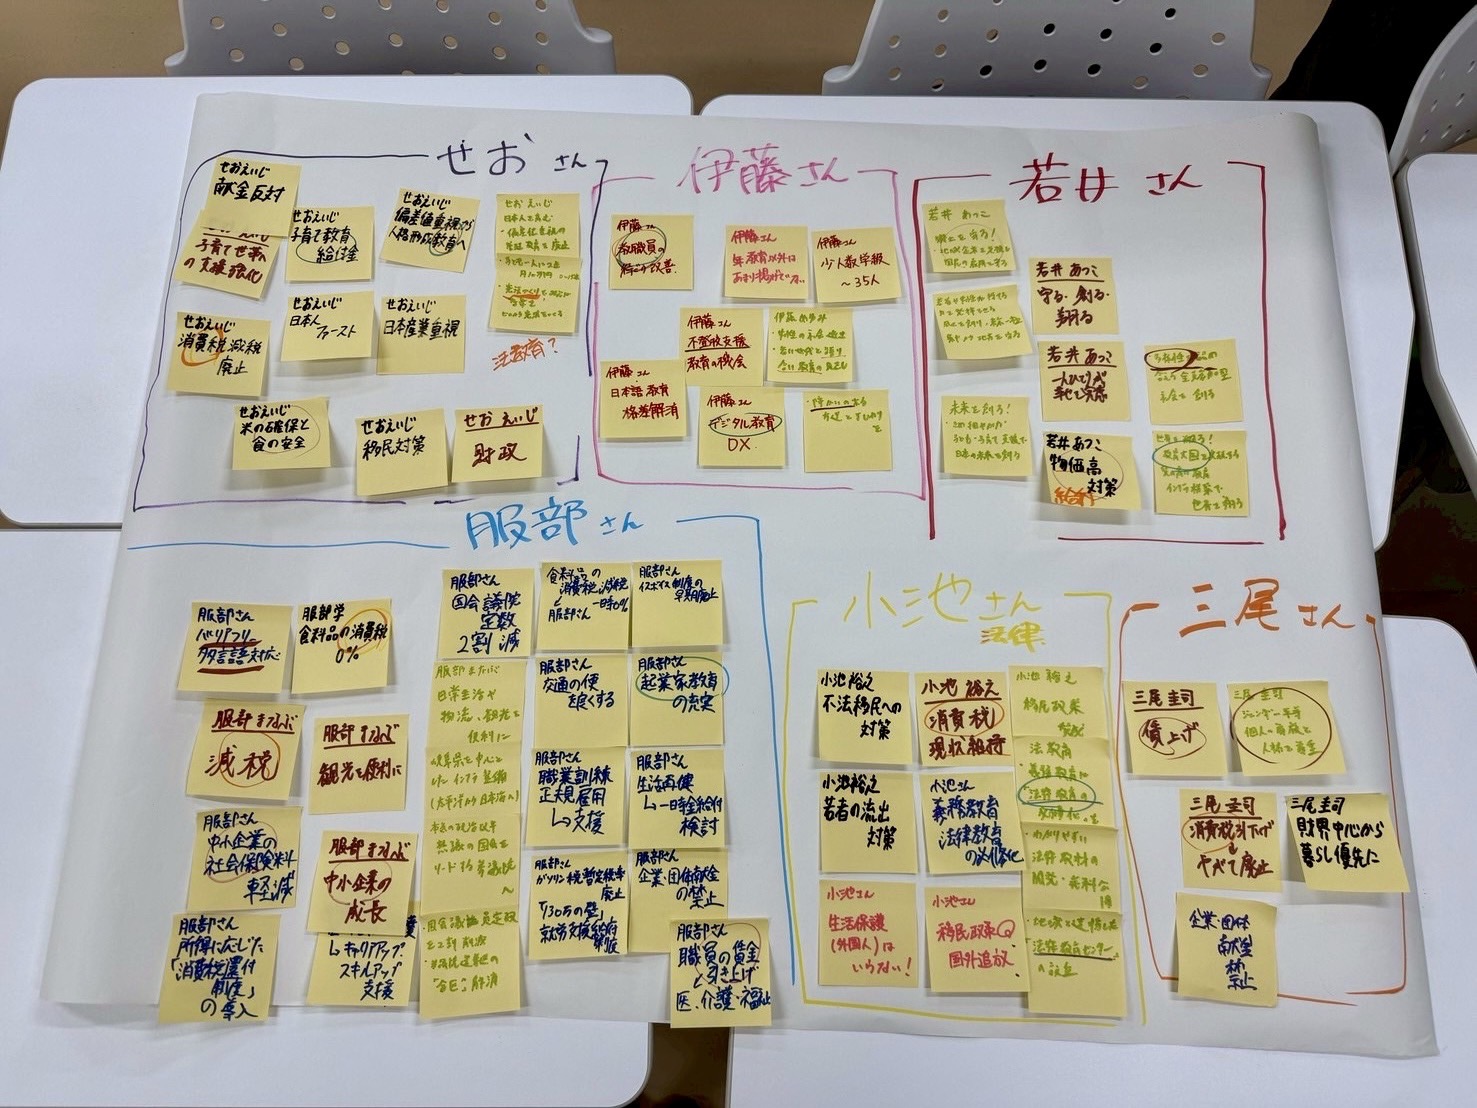 せお さん
せおえいじ
献金反対
子育て世帯へ
の支援強化
せおえいじ
子育て教育
給付金
せおえいじ
偏差値重視から
人格形成教育へ
せおえいじ
日本人を育む
・偏差値重視の
せおえいじ
消費税減税
廃止
せおえいじ
日本人
ファースト
せおえいじ
日本産業重視
法教育?
せおえいじ
米の確保と
食の安全
せおえいじ
移民対策
せおえいじ
財政
伊藤さん
伊藤さん
教職員の
伊藤さん
伊藤さん
少人数学級
～35人
伊藤さん
不登校支援
教育の機会
伊藤さん
日本語教育
格差解消
伊藤さん
デジタル教育
DX
若井さん
若井 あつこ
若井 あつこ
守る・創る・
翔る
若井 あつこ
一人ひとりが
若井あつこ
物価高
対策
給付
未来を創ろ!
服部さん
服部さん
バリアフリー
多言語対応
服部学
食料品の消費税
0%
服部さん
国会議院
定数
2割減
食料品の
消費税減税
一時0%
服部さん
服部さん
インボイス制度の
早期廃止
服部まなぶ
日常生活や
物流、観光を
便利に
服部さん
交通の便
を良くする
服部さん
起業家教育
の充実
服部まなぶ
減税
服部まなぶ
観光を便利に
服部さん
職業訓練
正規雇用
↳支援
服部さん
生活再建
↳一時金給付
検討
服部さん
中小企業の
社会保険料
軽減
服部まなぶ
中小企業の
成長
↳キャリアアップ、
スキルアップ
支援
服部さん
ガソリン税暫定税率
廃止
「130万の壁」
就労支援給付
制度
服部さん
企業・団体献金
の禁止
服部さん
所得に応じた
「消費税還付
制度」
の導入
服部さん
職員の賃金
を引き上げ
医、介護・福祉
小池さん
法律
小池裕之
不法移民への
対策
小池 裕之
消費税
現状維持
小池 裕之
移民政策
小池裕之
若者の流出
対策
小池さん
義務教育
法律教育
の必修化
法教育
・義務教育に
「法律教育の
わかりやすい
法律教材の
開発・無料公開
小池さん
生活保護
(外国人)は
いらない!
小池さん
移民政策
国外追放
法律教育センター
の設置
三尾さん
三尾 圭司
賃上げ
三尾 圭司
ジェンダー平等
個人の尊厳と
人権を尊重
三尾 圭司
消費税引下げ
↓
やがて廃止
三尾圭司
財界中心から
暮らし優先に
企業・団体
献金
禁止